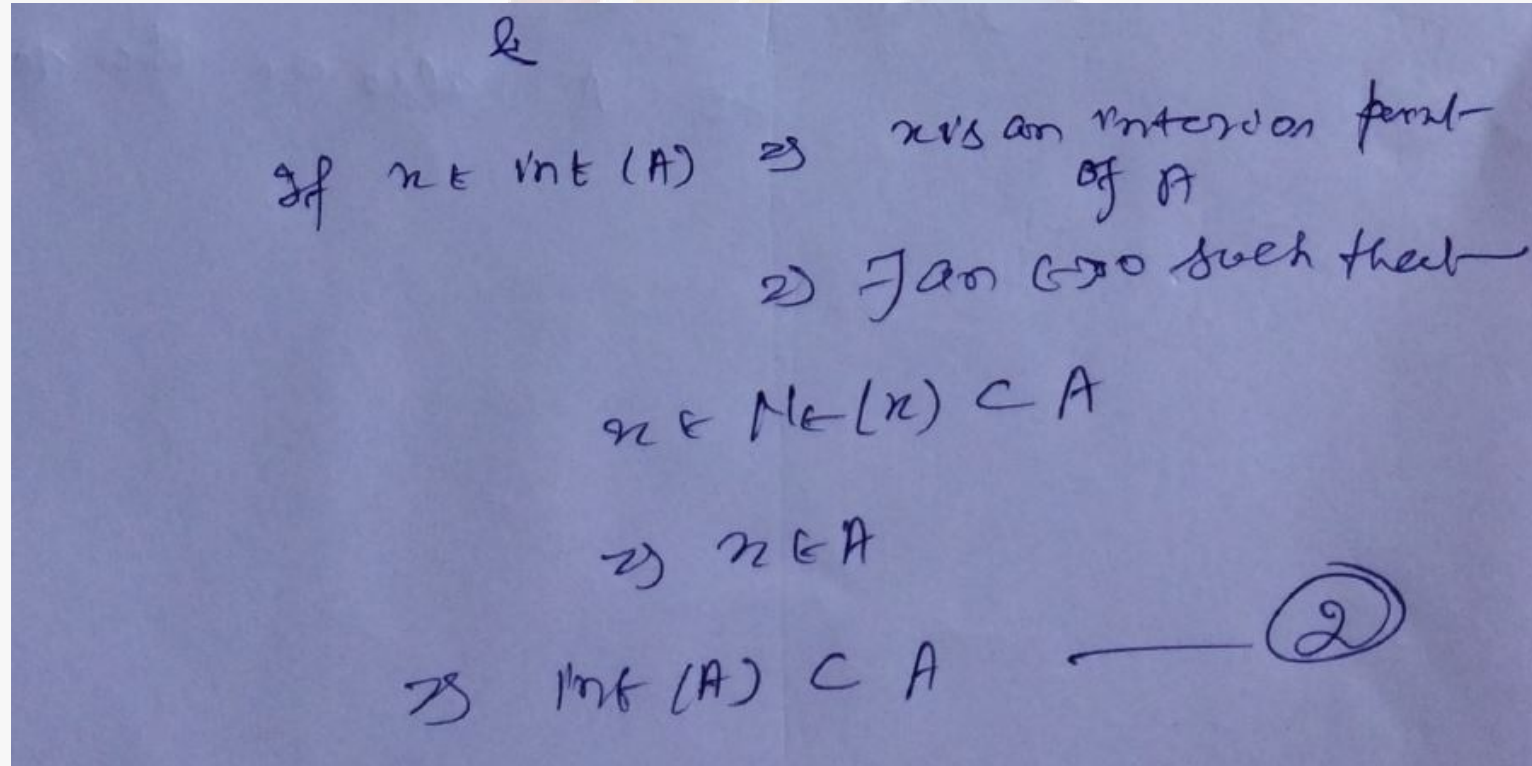 &
If x ∈ int (A) ⇒ x is an interior point
of A
⇒ ∃ an ϵ>0 such that
x ∈ Nϵ(x) ⊂ A
⇒ x ∈ A
⇒ int (A) ⊂ A —— ②